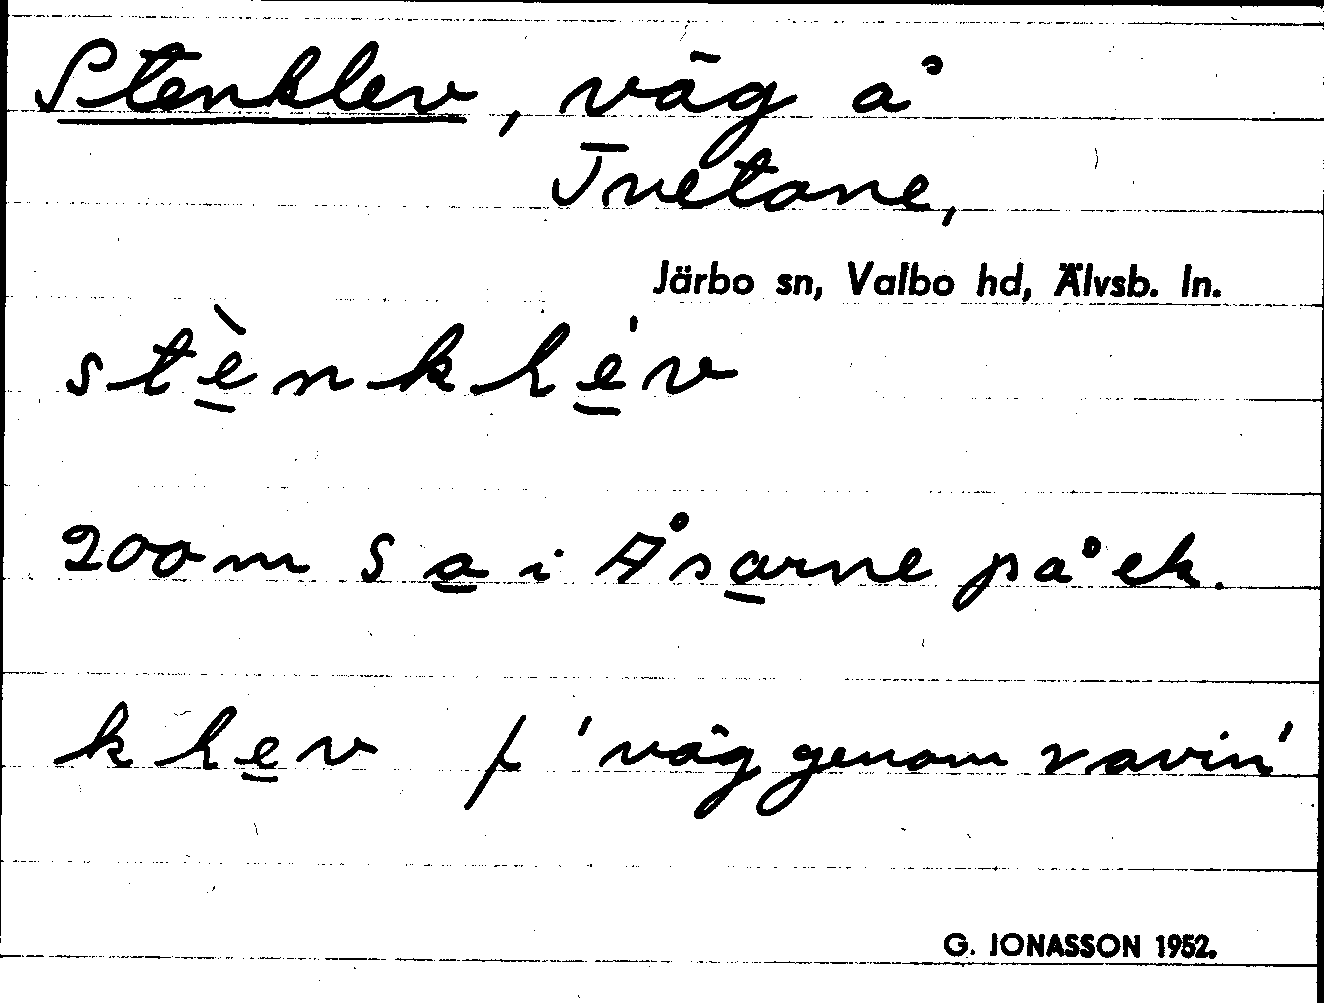 Stenklev, väg å
Tvetane,
Järbo sn, Valbo hd, Älvsb. ln.
stènkle̍v
200 m S a i Åsarne på ek.
klev f 'väg genom ravin'
G. JONASSON 1952.